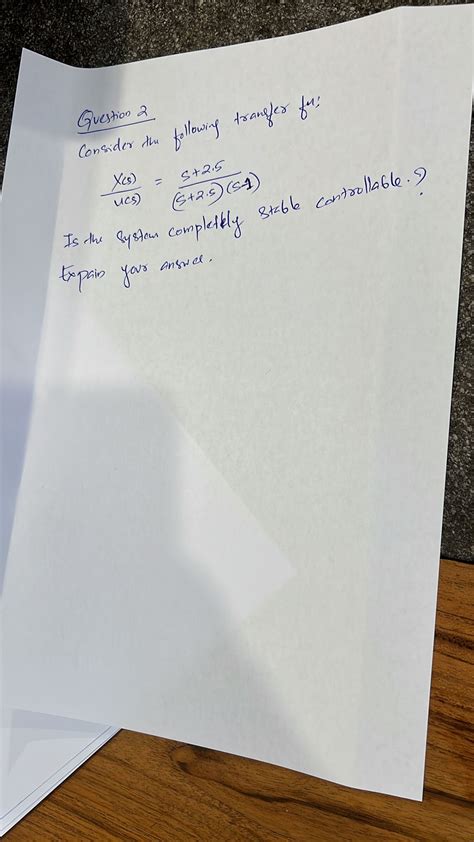 Question 2
Consider the following transfer fn:
X(s)/u(s) = s+2.5/(s+2.5)(s-1)
Is the system completely stable controllable.?
Expain your answer.